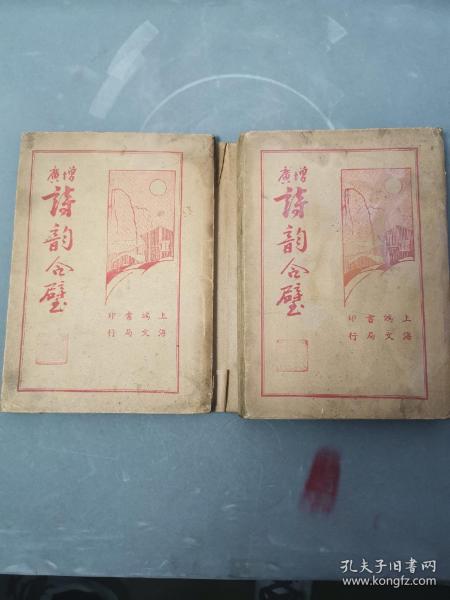 增廣
詩韵合璧
上海
鴻文
書局
印行
增廣
詩韵合璧
上海
鴻文
書局
印行
孔夫子旧书网
www.kongfz.com